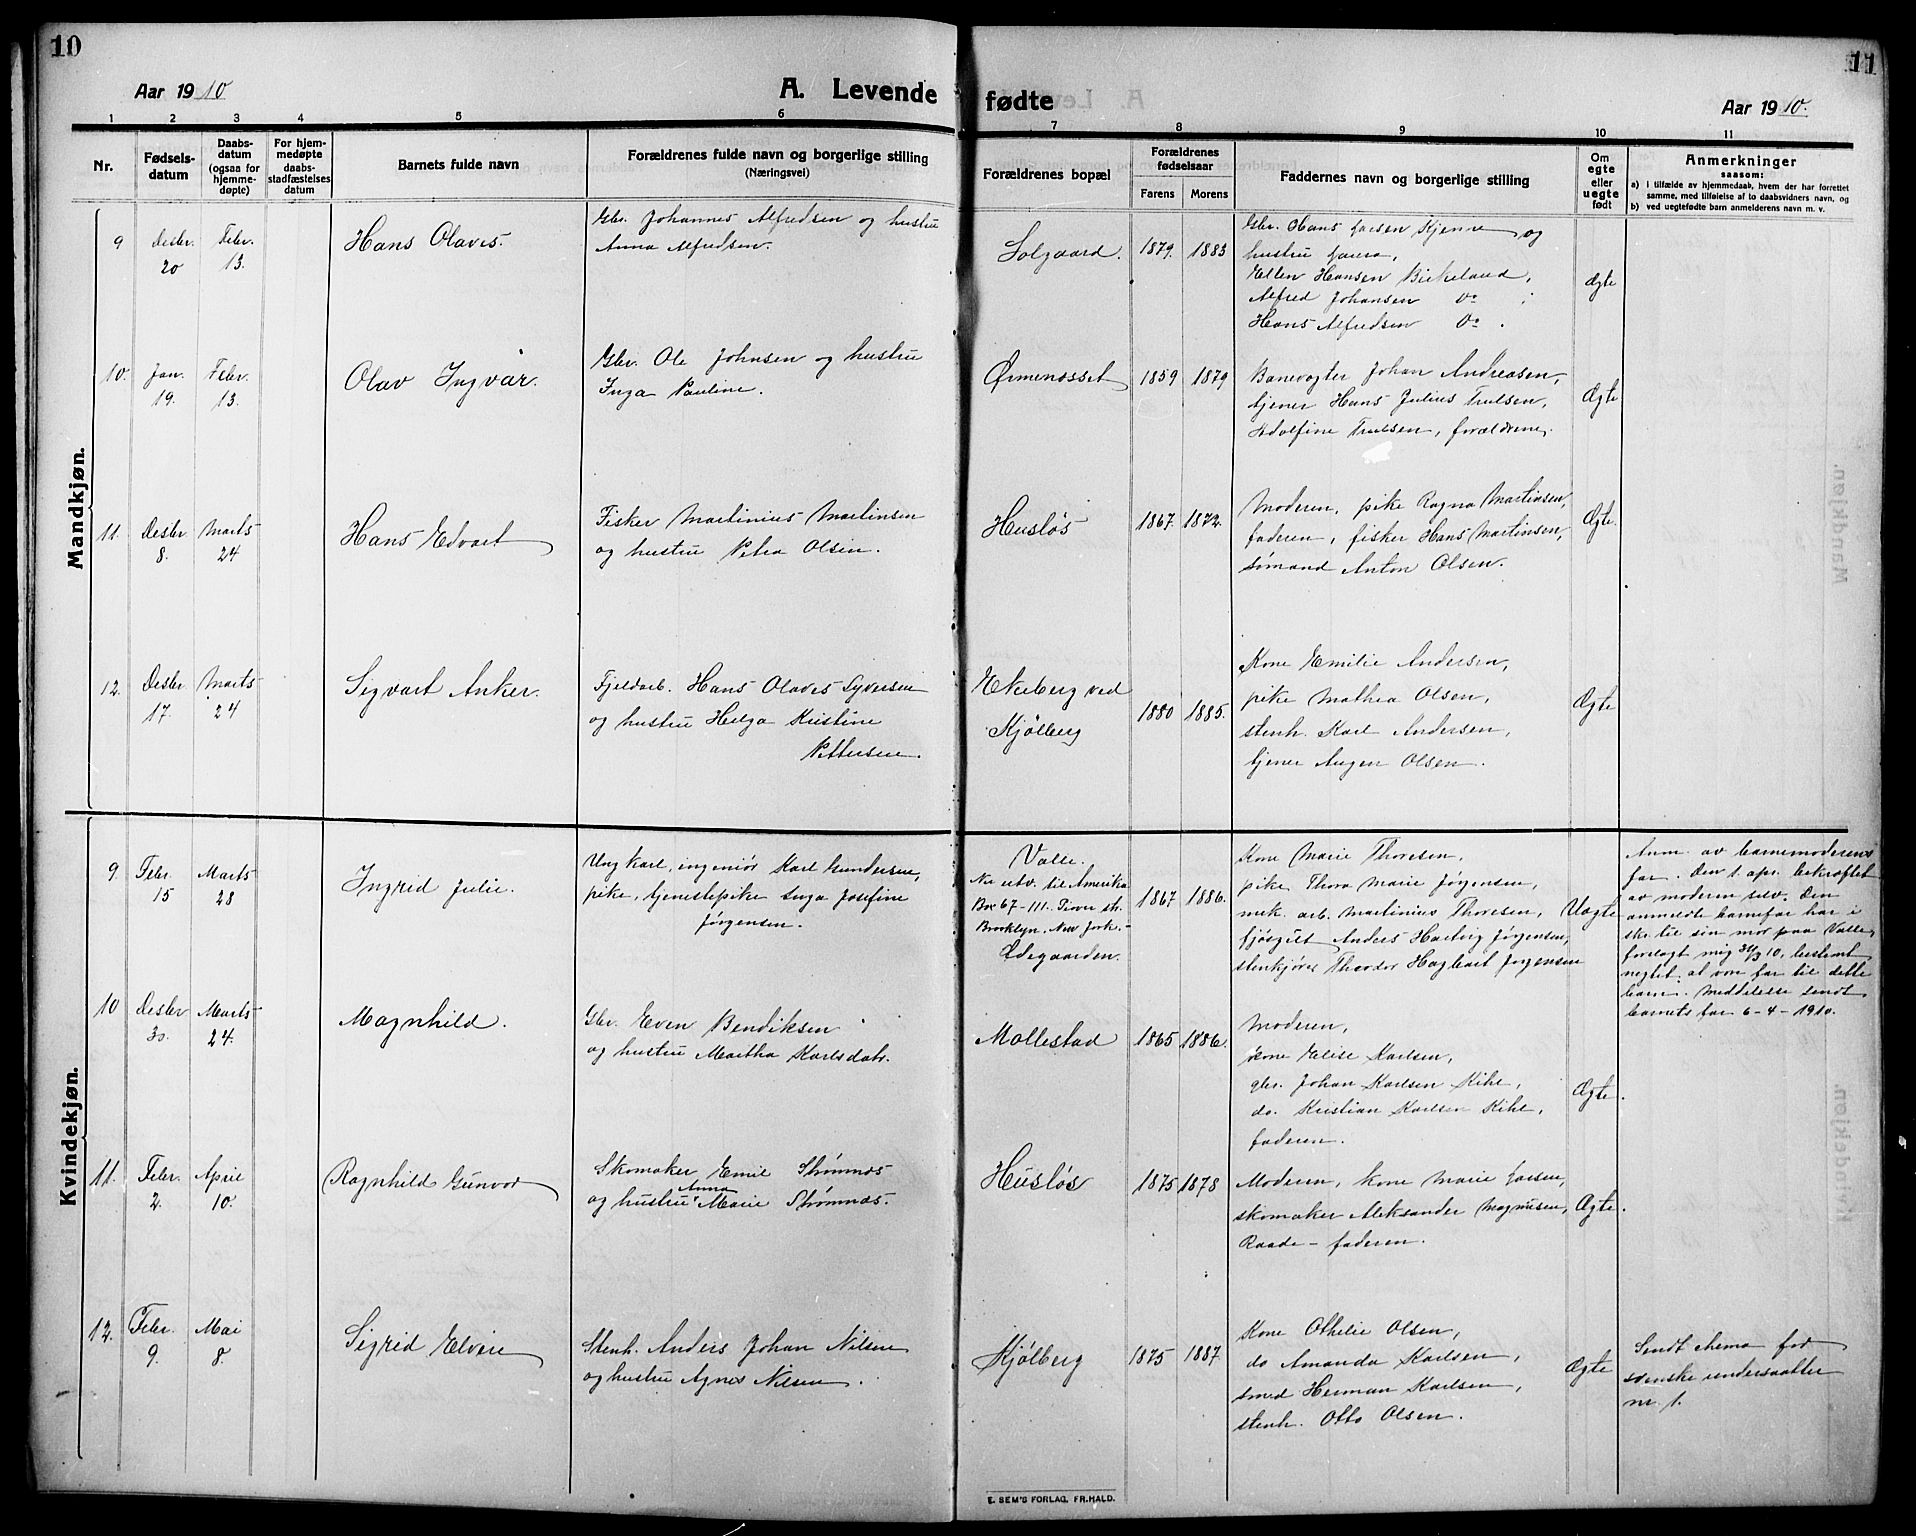 10
11
Aar 1910
A. Levende fødte
Aar 1910.
1 2 3 4 5 6 7 8 9 10 11
Nr.
Fødsels-
datum
Daabs-
datum
(ogsaa for
hjemme-
døpte)
For hjem-
medøpte
daabs-
stadfæstelses
datum
Barnets fulde navn
Forældrenes fulde navn og borgerlige stilling
(Næringsvei)
Forældrenes bopæl
Forældrenes
fødselsaar
Farens Morens
Faddernes navn og borgerlige stilling
Om
egte
eller
uegte
født
Anmerkninger
saasom:
a) i tilfælde av hjemmedaab, hvem der har forrettet
samme, med tilføielse af to daabsvidners navn, og
b) ved uegtefødte barn anmelderens navn m. v.
Mandkjøn.
9
Desbr.
20
Febr.
13.
Hans Olaves.
Gbr. Johannes Alfredsen og hustru
Anna Alfredsen.
Solgaard.
1879. 1883
Gbr. Hans Larsen Kjenne og
hustru Laura,
Ellen Hansen Birkeland,
Alfred Johansen do
Hans Alfredsen do.
Ægte
10.
Jan.
19.
Febr.
13.
Olav Ingvar.
Gbr. Ole Johnsen og hustru
Inga Pauline.
Ørmenosset
1859 1879
Banevogter Johan Andreasen,
tjener Hans Julius Trulsen,
Adolfine Trulsen, forældrene.
Ægte
11.
Desbr.
8.
Marts
24
Hans Edvart
Fisker Martinius Martinsen
og hustru Petra Olsen.
Husløs
1867. 1872.
Moderen, pike Ragna Martinsen,
faderen, fisker Hans Martinsen,
sømand Anton Olsen.
Ægte.
12.
Desbr
17.
Marts
24
Sigvart Anker.
Fjeldarb. Hans Olaves Syversen
og hustru Helga Kristine
Pettersen.
Ekeberg ved
Kjølberg
1880 1885.
Kone Emilie Andersen,
pike Mathea Olsen,
stenh. Karl Andersen,
tjener Augen Olsen.
Ægte
Kvindekjøn.
9.
Febr
15
Marts
28
Ingrid Julie.
Ungkarl, ingeniør Karl Gundersen,
pike, tjenestepike Inga Josefine
Jørgensen.
Valle.
Nu utv. til Amerika
Box 67-111. Tiover str.
Brooklyn. New York.-
Ødegaarden.
1867 1886.
Kone Marie Thoresen,
pike Thora Marie Jørgensen,
mek. arb. Martinius Thoresen,
fjøsgut Anders Hartvig Jørgensen,
stenkjører Theodor Hagbart Jørgensen
Uægte
Anm. av barnemoderens
far. Den 1. apr. bekræftet
av moderen selv. Den
anmeldte barnefar har i
skr. til sin mor paa Valle,
forelagt mig 31/3 10, bestemt
negtet at være far til dette
barn. Meddelelse sendt
barnets far 6-4-1910.
10
Desbr
30.
Marts
24.
Magnhild.
Gbr. Even Bendiksen
og hustru Martha Karlsdatr.
Mollestad
1865 1886.
Moderen,
kone Elise Karlsen,
gbr. Johan Karlsen Kihl,
do. Kristian Karlsen Kihl,
faderen.
Ægte.
11.
Febr.
2.
April
10.
Ragnhild Gunvor
Skomaker Emil Strømnæs
og hustru Anna Marie Strømnæs.
Husløs
1875 1878
Moderen, kone Marie Larsen,
skomaker Aleksander Magnusen,
Raade - faderen.
Ægte.
12.
Febr.
9.
Mai
8.
Sigrid Elvire
Stenh. Anders Johan Nilsen
og hustru Agnes Nilsen.
Kjølberg
1875 1887.
Kone Othelie Olsen,
do Amanda Karlsen,
smed Herman Karlsen,
stenh. Otto Olsen.
Ægte
Sendt skema for
svenske undersaatter
nr. 1.
E. SEM'S FORLAG, FR.HALD.